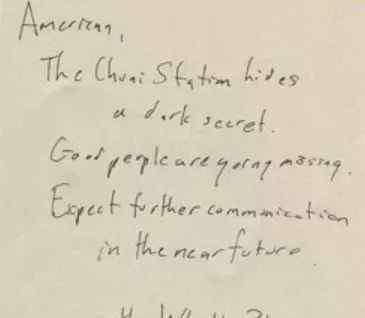 American,
The Chuai Station hides
a dark secret.
Good people are going missing.
Expect further communication
in the near future.